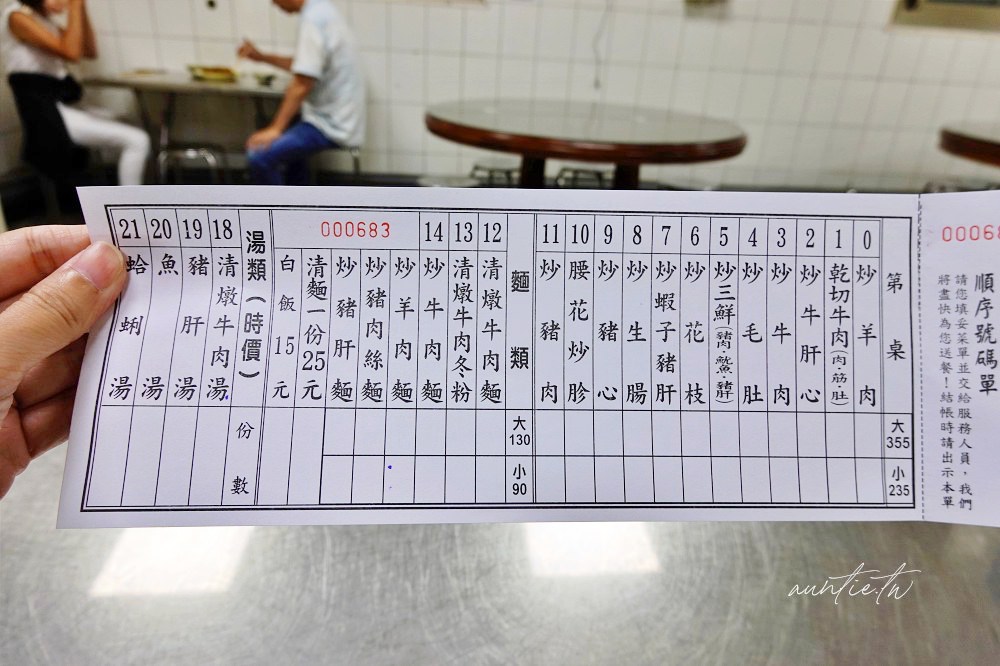 000683
順序號碼單
請您填妥菜單並交給服務人員，我們
將盡快為您送餐！結帳時請出示本單
第 桌
大 355
小 235
0 炒羊肉
1 乾切牛肉(肉·筋·肚)
2 炒牛肝心
3 炒牛肉
4 炒毛肚
5 炒三鮮(豬肉·魷魚·豬肝)
6 炒花枝
7 炒蝦子豬肝
8 炒生腸
9 炒豬心
10 腰花炒胗
11 炒豬肉
麵類
大 130
小 90
12 清燉牛肉麵
13 清燉牛肉冬粉
14 炒牛肉麵
000683
炒羊肉麵
炒豬肉絲麵
炒豬肝麵
清麵一份25元
白飯15元
湯類(時價)
份數
18 清燉牛肉湯
19 豬肝湯
20 魚湯
21 蛤蜊湯
auntie.tw